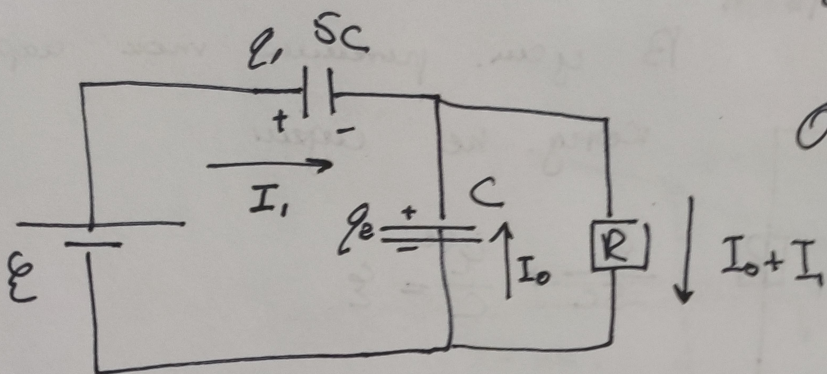 q₁ 5C
+ -
I₁
ℰ
q₂ + - C
I₀
R
I₀ + I₁